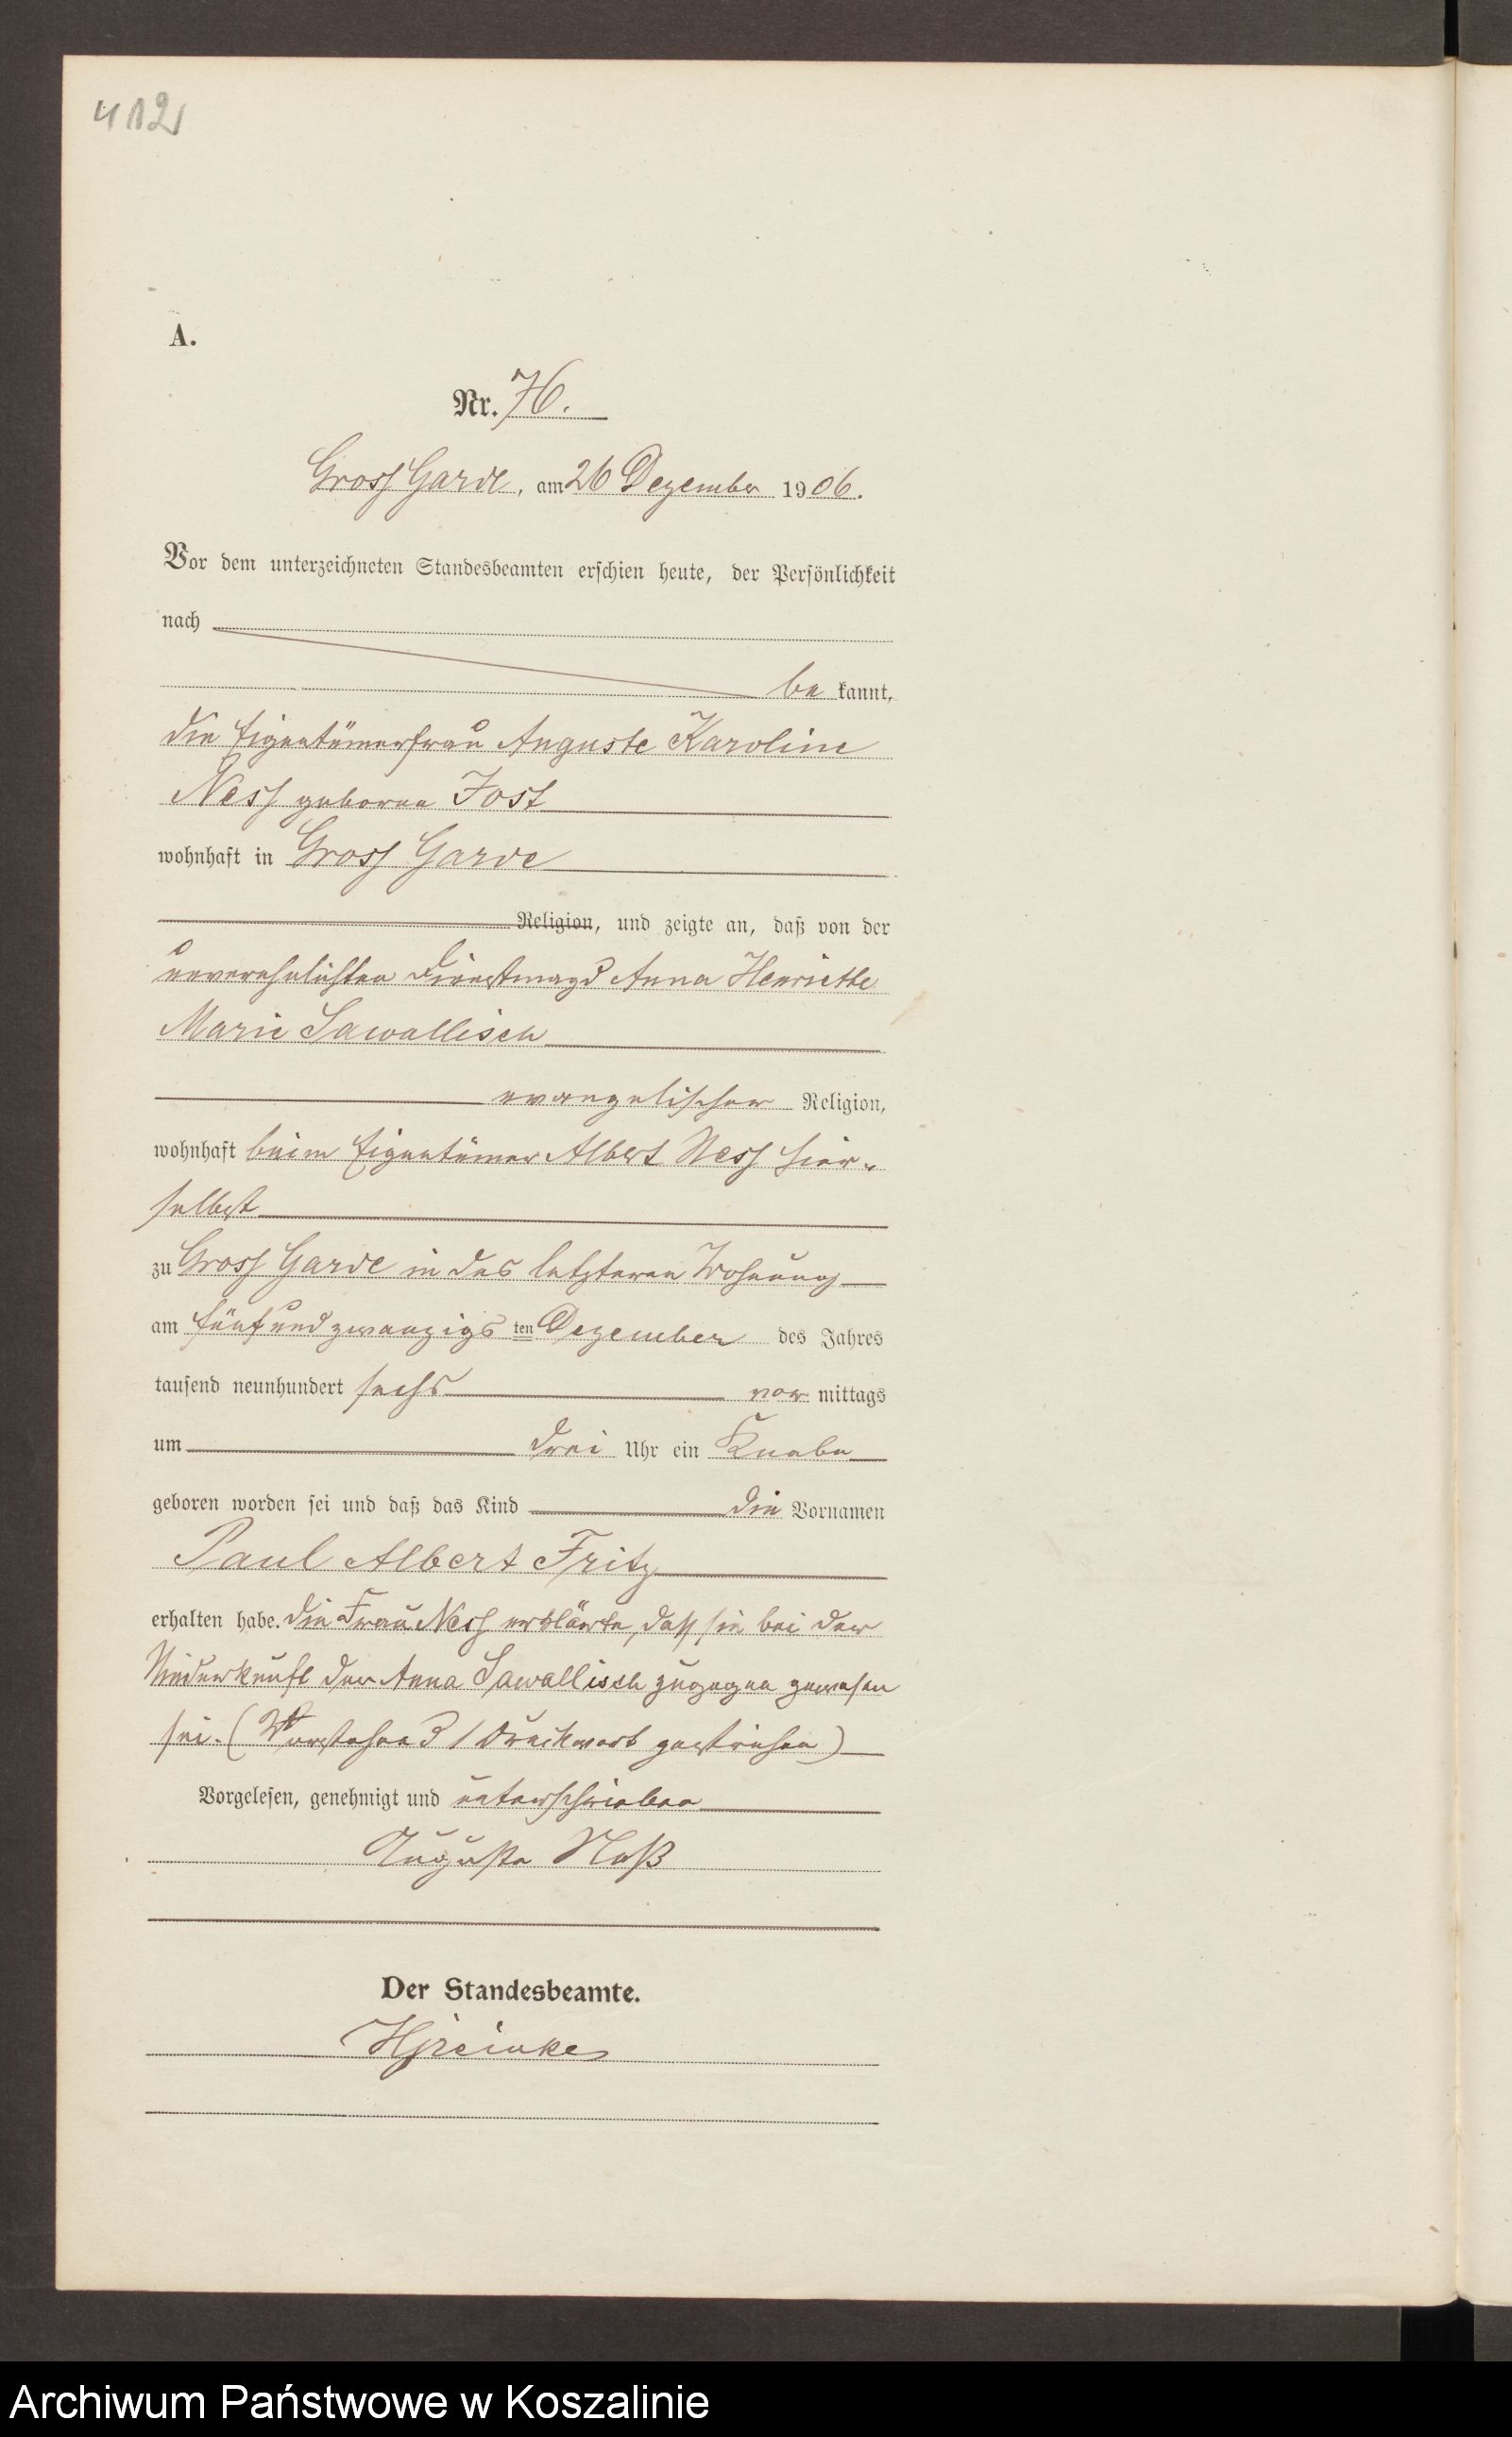 412
A.
Nr. 76.
Gross Garde, am 26 Dezember 1906.
Vor dem unterzeichneten Standesbeamten erschien heute, der Persönlichkeit
nach
be kannt,
die Eigentümerfrau Auguste Karoline
Ness geborene Jost
wohnhaft in Gross Garde
Religion, und zeigte an, daß von der
unverehelichten Dienstmagd Anna Henriette
Marie Sawallisch
evangelischer Religion,
wohnhaft beim Eigentümer Albert Ness hier-
selbst
zu Gross Garde in des letzteren Wohnung
am fünfundzwanzigs ten Dezember des Jahres
tausend neunhundert sechs vor mittags
um drei Uhr ein Knabe
geboren worden sei und daß das Kind die Vornamen
Paul Albert Fritz
erhalten habe. Die Frau Ness erklärte, dass sie bei der
Niederkunft der Anna Sawallisch zugegen gewesen
sei. (Vorstehend 1 Druckwort gestrichen)
Vorgelesen, genehmigt und unterschrieben
Auguste Neß
Der Standesbeamte.
Archiwum Państwowe w Koszalinie